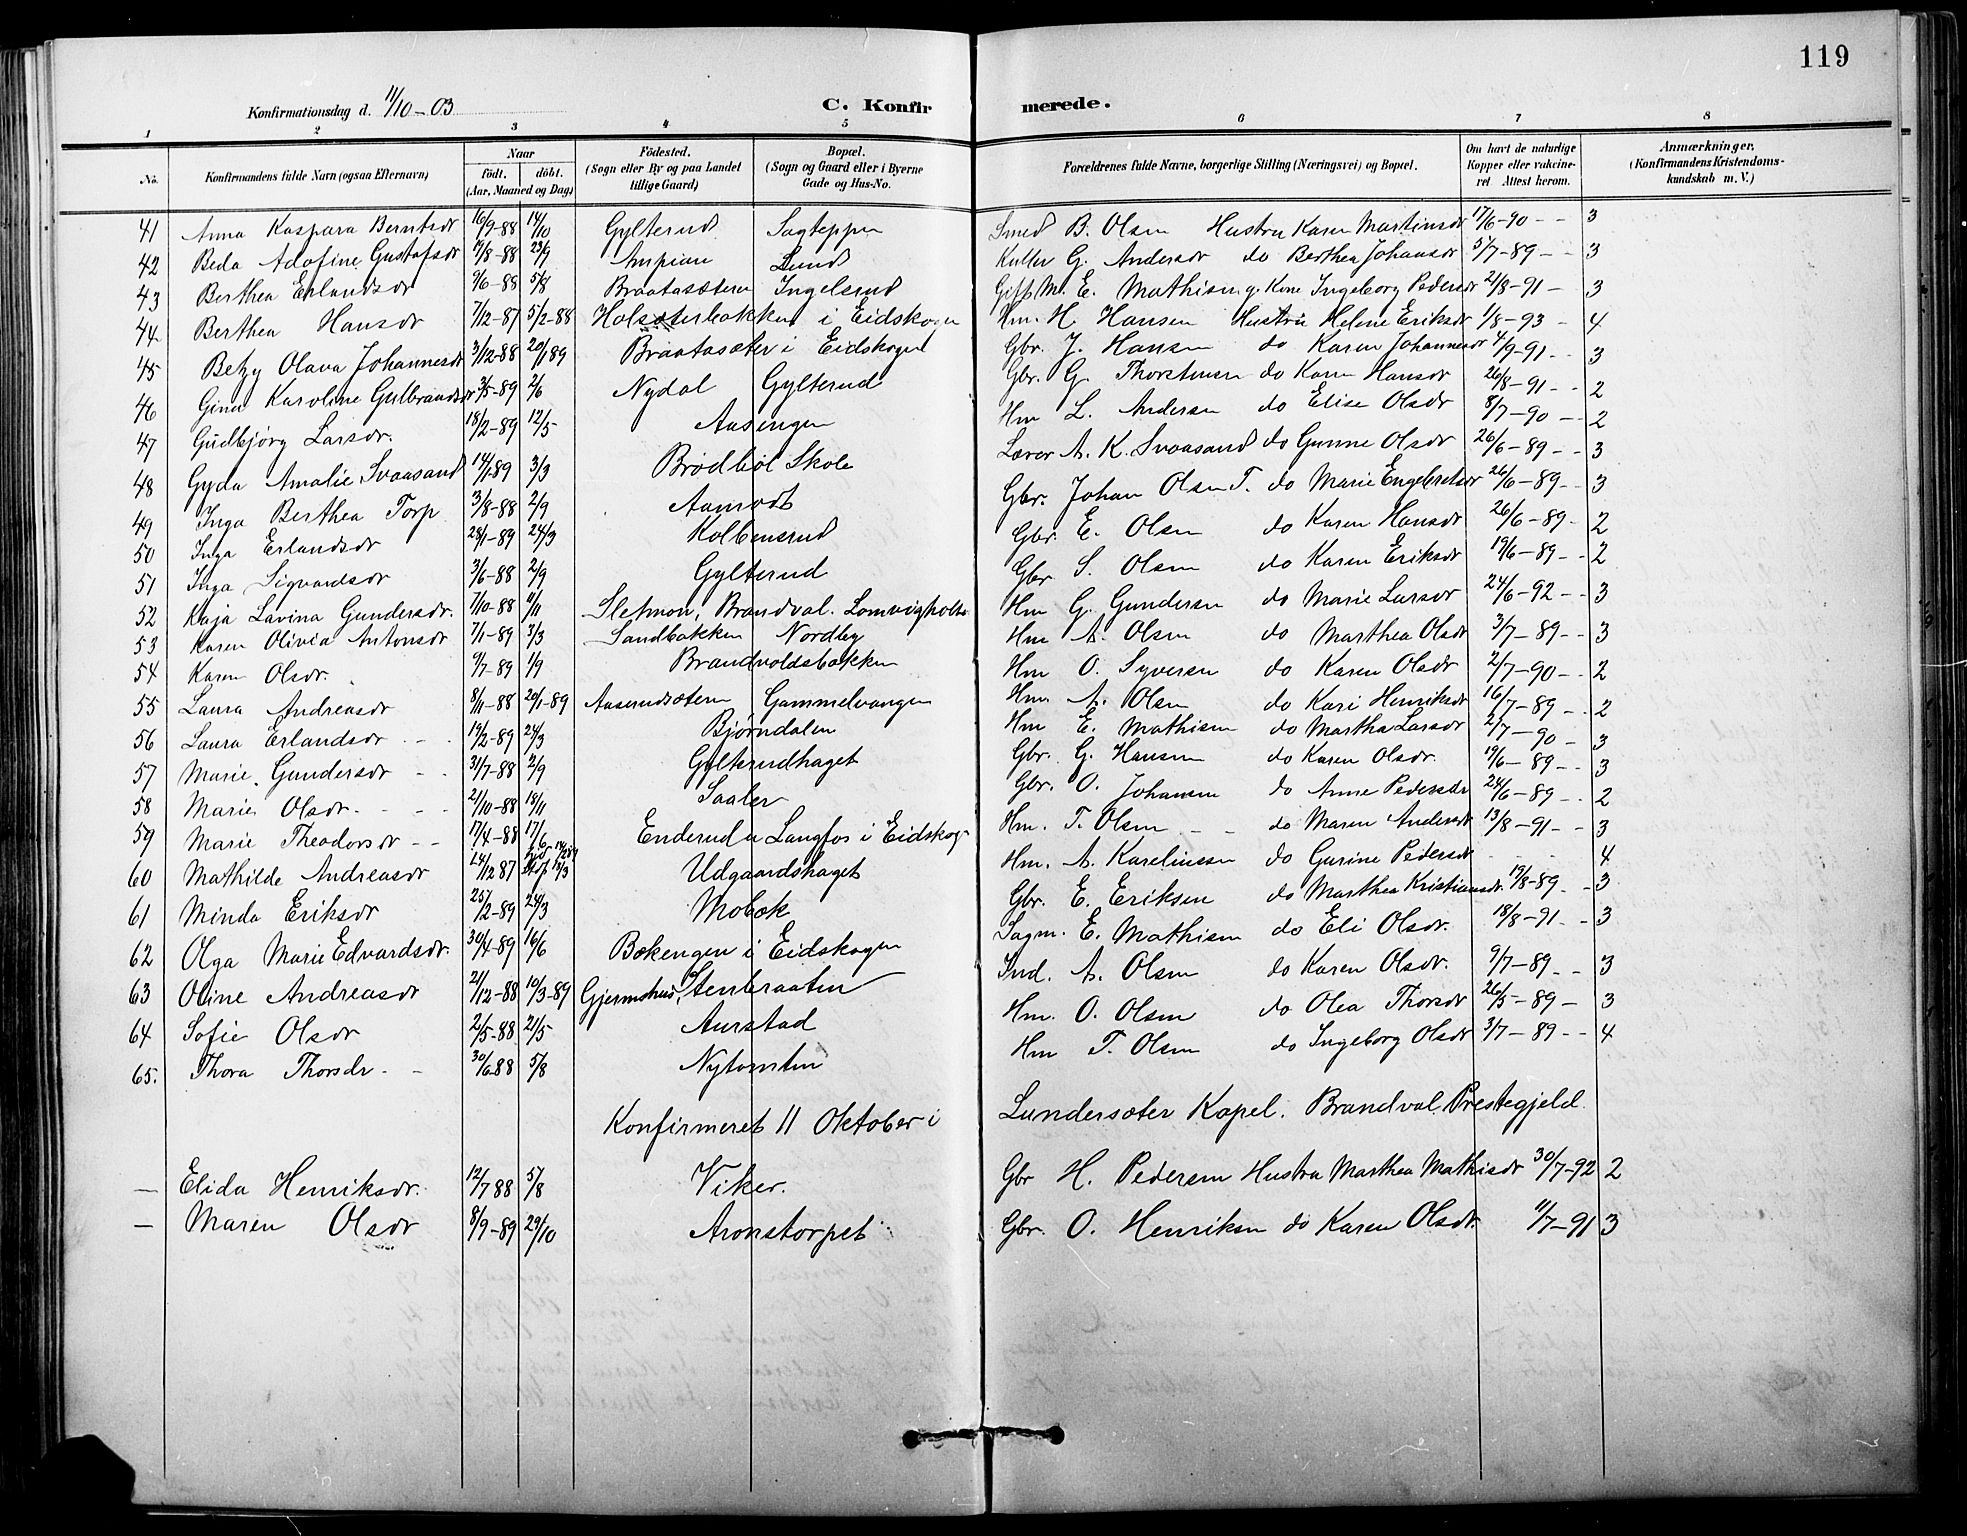 119
Konfirmationsdag d. 11/10-03 C. Konfirmerede.
1 2 3 4 5 6 7 8
No. Konfirmandens fulde Navn (ogsaa Efternavn) Naar födt. döbt. (Aar, Maaned og Dag) Födested. (Sogn eller By og paa Landet tillige Gaard) Bopæl. (Sogn og Gaard eller i Byerne Gade og Hus-No. Forældrenes fulde Navne, borgerlige Stilling (Næringsvei) og Bopæl. Om havt de naturlige Kopper eller vakcineret Attest herom. Anmærkninger. (Konfirmandens Kristendomskundskab m. V.)
41 Anna Kaspara Berntsdr 16/9-88 14/10 Gylterud Sagteppen Smed B. Olsen Hustru Karen Martinsdr 17/6-90 - - 3
42 Beda Adofine Gustafsdr 19/8-88 23/9 Ampian Lund Kuller G. Andersdr do Berthea Johansdr 5/7-89 - - 3
43 Berthea Erlandsdr 9/6-88 5/8 Braatasæteren Ingelsrud Gift M. E. Mathisen g. Kone Ingeborg Pedersdr 21/8-91 - 3
44 Berthea Hansdr 7/12-87 5/2-88 Holsæterbakken i Eidskogen Hm. H. Hansen Hustru Helene Eriksdr 1/8-93 - 4
45 Betzy Olava Johannesdr 3/12-88 20/1 89 Braatasæter i Eidskogen Gbr. J. Hansen do Karen Johannesdr 4/9-91 - - 3
46 Gina Karoline Gulbrandsdr 3/5-89 2/6 Nydal Gylterud Gbr. G. Thorstensen do Karen Hansdr 26/8-91 - - 2
47 Gudbjørg Larsdr. 18/2-89 12/5 Aasengen Hm L. Andersen do Elise Olsdr 8/7-90 - - 2
48 Gyda Amalie Svaasand 14/1 89 3/3 Brødbøl Skole Lærer A. K. Svaasand do Gunne Olsdr 26/6-89 - - 3
49 Inga Berthea Torp 3/8-88 2/9 Aamodt Gbr. Johan Olsen T. do Marie Engebretsdr 26/6-89 - - 3
50 Inga Erlandsdr 28/1-89 24/3 Kolbensrud Gbr. E. Olsen do Karen Hansdr 26/6-89 - 2
51 Inga Sigvardsdr 3/6-88 2/9 Gylterud Gbr S. Olsen do Karen Eriksdr 19/6-89 - - 2
52 Kaja Lavina Gundersdr. 7/10-88 11/11 Sletmon, Brandval. Lomvigholts Hm G. Gundersen do Marie Larsdr 24/6-92 - - 3
53 Karen Olivia Antonsdr 7/1-89 3/3 Sandbakken Nordby Hm A. Olsen do Marthea Olsdr 3/7-89 - - 3
54 Karen Olsdr. 9/7-89 1/9 Brandvoldsbakken Hm O. Syversen do Karen Olsdr 2/7-90 - - 2
55 Laura Andreasdr 8/11-88 20/1-89 Aaserudsæteren Gammelvangen Hm. A. Olsen do Kari Henriksdr 16/7-89 - - 2
56 Laura Erlandsdr 13/2-89 24/3 Bjørndalen Hm E. Mathisen do Martha Larsdr 2/7-90 - 3
57 Marie Gundersdr 31/7-88 2/9 Gylterudhaget Gbr. G. Hansen do Karen Olsdr. 19/6-89 - - 3
58 Marie Olsdr. 21/10-88 18/11 Saaler Gbr. O. Johansen do Anne Pedersdr 24/6-89 - - 2
59 Marie Theodorsdr - - 17/4-88 17/6 Enderud u Langfos i Eidskog Hm. T. Olsen - - do Maren Andersdr 13/8-91 - - 3
60 Mathilde Andreasdr 24/12 87 Udgaardshaget Hm. A. Karelinssen do Gurine Pedersdr 4
61 Minda Eriksdr 25/2-89 24/3 Mobæk Gbr. E. Eriksen do Marthea Kristiansdr. 19/8-89 - - 3
62 Olga Marie Edvardsdr. 30/4-89 16/6 Bækengen i Eidskogen Sagm. E. Mathisen do Eli Olsdr. 18/8-91 - - 3
63 Oline Andreasdr 21/12-88 10/3-89 Gjermshus, Stenbraaten Ind. A. Olsen do Karen Olsdr. 9/7-89 - - 3
64 Sofie Olsdr 2/5-88 21/5 Aurstad Hm. O. Olsen do Olea Thorsdr 26/5-89 - 3
65. Thora Thorsdr - - 30/6 88 5/8 Nytomten Hm T. Olsen do Ingeborg Olsdr 3/7-89 - - 4
Konfirmeret 11 Oktober i Lundersæter Kapel. Brandval Prestegjeld
- Elida Henriksdr. 12/7 88 5/8 Viker. Gbr H. Pedersen Hustru Marthea Mathisdr 30/7-92 2
- Maren Olsdr 8/9-89 29/10 Aronstorpet Gbr. O. Henriksen do Karen Olsdr. 11/7-91 3